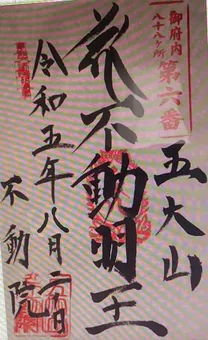 御府内
八十八ヶ所
第六番
五大山
不動明王
令和五年八月二十日
不動院